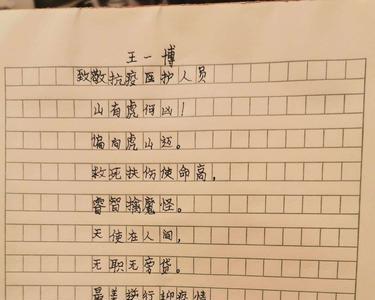 王一博
致敬抗疫医护人员
山有虎何凶！
偏向虎山迈。
救死扶伤使命高，
睿智擒魔怪。
天使在人间，
无职无旁贷。
最美逆行抑疫情